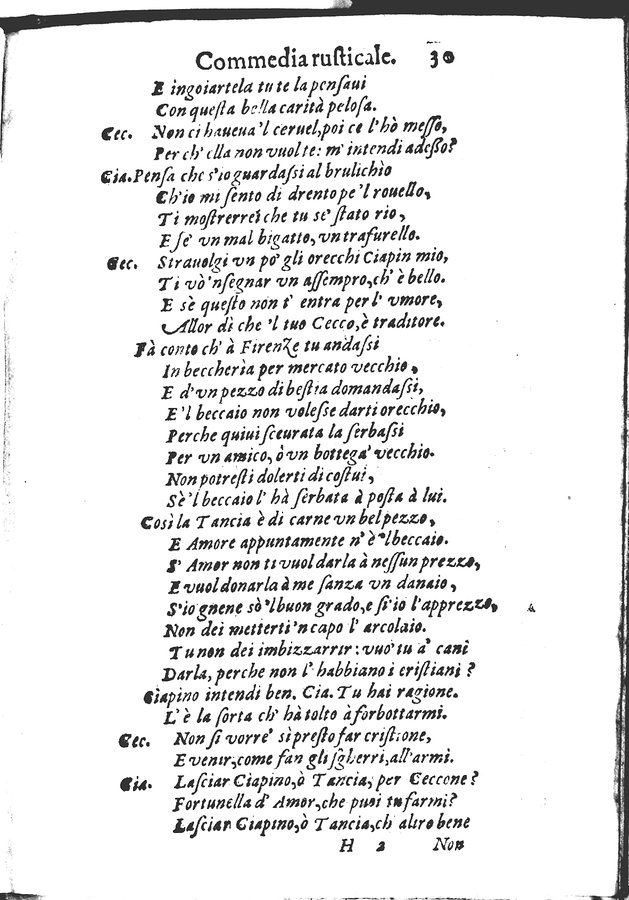 Commedia rusticale. 30
E ingoiartela tu te la pensaui
Con questa bella carità pelosa.
Cec. Non ci haueua 'l ceruel, poi ce l' hò messo,
Per ch' ella non vuol te: m' intendi adesso?
Cia. Pensa che s'io guardassi al brulichìo
Ch'io mi sento di drento pe 'l rouello,
Ti mostrerrei che tu se' stato rio,
E se' vn mal bigatto, vn trafurello.
Cec. Strauolgi vn po' gli orecchi Ciapin mio,
Ti vò 'nsegnar vn assempro, ch' è bello.
E sè questo non t' entra per l' vmore,
Allor di che 'l tuo Cecco, è traditore.
Fà conto ch' à Firenze tu andassi
In beccherìa per mercato vecchio,
E d'vn pezzo di bestia domandassi,
E 'l beccaio non volesse darti orecchio,
Perche quiui sceurata la serbassi
Per vn amico, ò vn bottega' vecchio.
Non potresti dolerti di costui,
Sè 'l beccaio l' hà serbata à posta à lui.
Così la Tancia è di carne vn bel pezzo,
E Amore appuntamente n' è 'l beccaio.
S' Amor non ti vuol darla à nessun prezzo,
E vuol donarla à me sanza vn danaio,
S'io gnene sò 'l buon grado, e s' io l'apprezzo,
Non dei metterti 'n capo l' arcolaio.
Tu non dei imbizzarrir: vuo' tu a' cani
Darla, perche non l' habbiano i cristiani?
Ciapino intendi ben. Cia. Tu hai ragione.
L' è la sorta ch' hà tolto à sorbottarmi.
Cec. Non si vorre' sì presto far cristione,
E venir, come fan gli sgherri, all'armi.
Cia. Lasciar Ciapino, ò Tancia, per Ceccone?
Fortunella d' Amor, che puoi tu farmi?
Lasciar Ciapino, ò Tancia, ch altro bene
H 2 Non